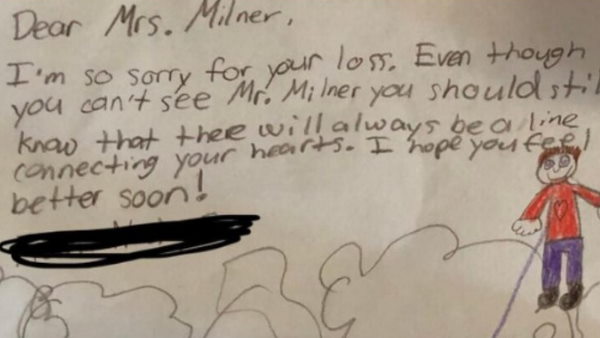 Dear Mrs. Milner,
I'm so sorry for your loss. Even though
you can't see Mr. Milner you should stil
know that there will always be a line
connecting your hearts. I hope you feel
better soon!